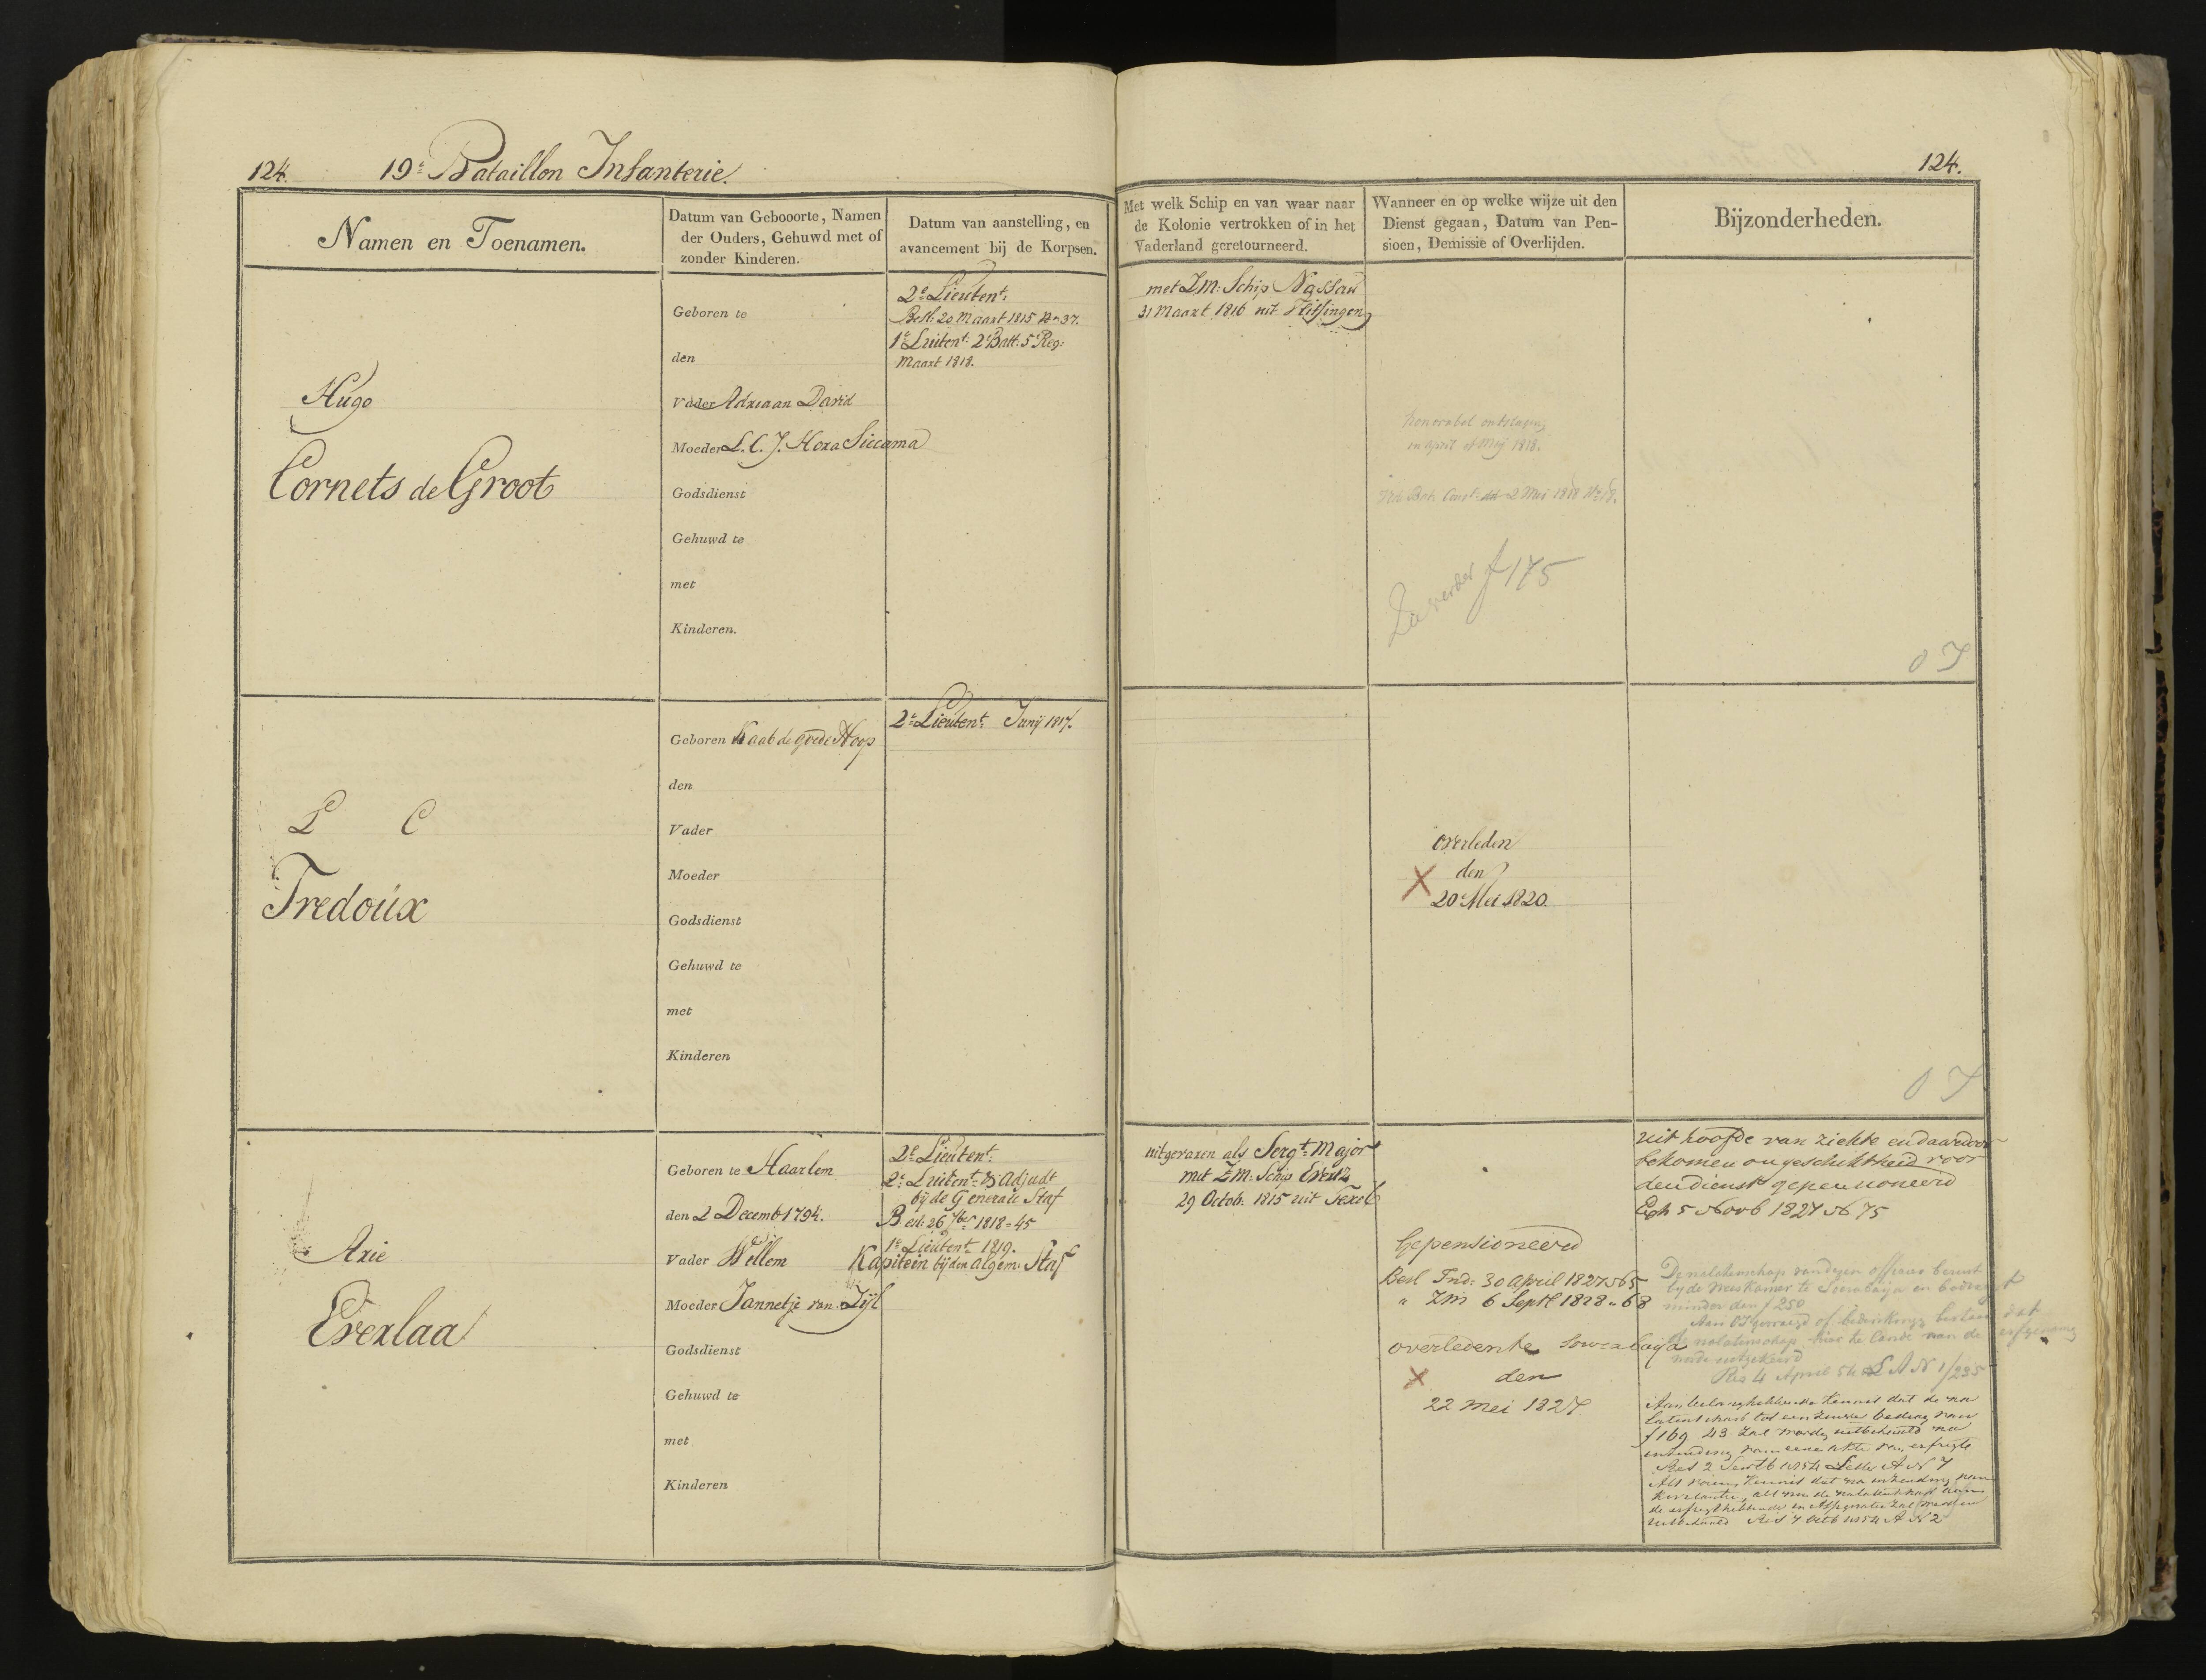 124.
19e Bataillon Infanterie.
124.
Namen en Toenamen.
Datum van Gebooorte, Namen
der Ouders, Gehuwd met of
zonder Kinderen.
Datum van aanstelling, en
avancement bij de Korpsen.
Met welk Schip en van waar naar
de Kolonie vertrokken of in het
Vaderland geretourneerd.
Wanneer en op welke wijze uit den
Dienst gegaan, Datum van Pen-
sioen, Demissie of Overlijden.
Bijzonderheden.
Hugo
Cornets de Groot
Geboren te
den
Vader Adriaan David
Moeder L. C. J. Hora Siccama
Godsdienst
Gehuwd te
met
Kinderen.
2e Lieutent:
Besl: 20 Maart 1815 No 37.
1e Luitent: 2e Batt: 5 Reg:
Maart 1818.
met Z.M: Schip Nassau
31 Maart 1816 uit Flissingen
honorabel ontslagen
in april of Meij 1818.
2 Mei 1818 No 18.
Zie verder f 175
O I
L C
Tredoux
Geboren Kaab de goede Hoop
den
Vader
Moeder
Godsdienst
Gehuwd te
met
Kinderen
2e Lieutent Junij 1817.
overleden
den
X 20e Mei 1820.
O I
Arie
Everlaa
Geboren te Haarlem
den 2 Decemb 1794.
Vader Willem
Moeder Jannetje van Zijl
Godsdienst
Gehuwd te
met
Kinderen
2e Lieutent:
2e Luitent: & Adjudt
bij de Generale Staf
Besl: 26 7ber 1818 = 45
1e Lieutent 1819.
Kapitein bij den algem: Staf
uitgevaren als Sergt Major
met Z.M: Schip Evertz
29 Octob: 1815 uit Texel
Gepensioneerd
Besl Ind: 30 April 1827 No 65
" ZM 6 Septl 1828 " 68
overleden te Sourabaya
X den
22 Mei 1827
uit hoofde van ziekte en daardoor
bekomen ongeschiktheid voor
den dienst gepensioneerd
5 Novb 1827 No 75
De nalatenschap van dezen officier berust
bij de Weeskamer te Sourabaya en bedraagt
minder dan f 250
nalatenschap hier te lande aan de erfgenamen
uitgekeerd
Res 4 April 54 L A N 1/235
Aan belanghebbende kennis dat de na
latenschap tot een zuiver bedrag van
f 169 43 zal worden uitbetaald na
inzending van eene akte van erfregt
Res 2 Septb 1854 Letter A N 7
uitbetaald Res 7 Octb 1854 A N 2